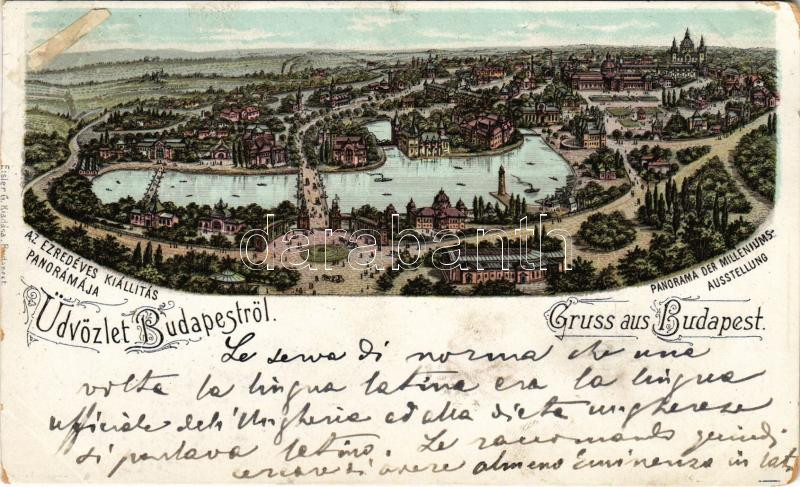 AZ EZREDÉVES KIÁLLITÁS
PANORÁMÁJA
PANORAMA DER MILLENIUMS-
AUSSTELLUNG
darabanth
Üdvözlet Budapestről.
Gruss aus Budapest.
Le serva di norma che una
volta la lingua latina era la lingua
ufficiale dell'Ungheria ed alla dieta ungherese
si parlava latino. Le raccomando quindi
cercare di avere almeno Eminenza in lat.
Eisler G. Kiadása